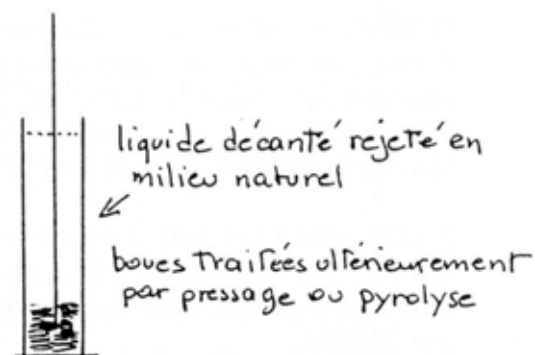 liquide décanté rejeté en
milieu naturel
boues traitées ultérieurement
par pressage ou pyrolyse